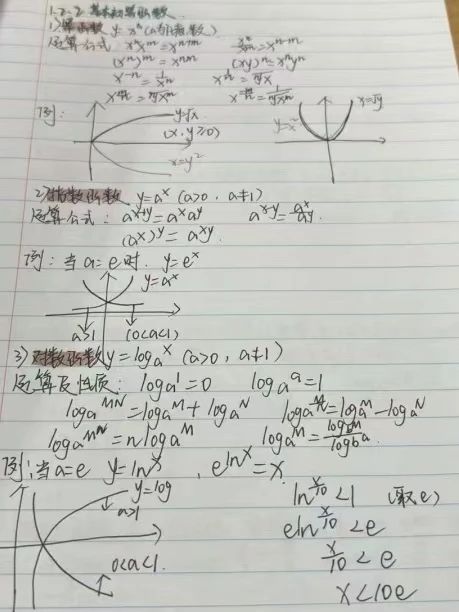 1-2-2 基本初等函数
1) 幂函数 y=xⁿ (n为任意数)
运算公式 xⁿxᵐ=xⁿ⁺ᵐ xⁿ/xᵐ=xⁿ⁻ᵐ
(xⁿ)ᵐ=xⁿᵐ (xy)ⁿ=xⁿyⁿ
x⁻ⁿ=1/xⁿ
例:
y=√x
(x,y≥0)
x=y²
y=x²
x=√y
2) 指数函数 y=aˣ (a>0, a≠1)
运算公式: aˣ⁺ʸ=aˣaʸ aˣ⁻ʸ=aˣ/aʸ
(aˣ)ʸ=aˣʸ
例: 当a=e时. y=eˣ
y=aˣ
a>1 (0<a<1)
3) 对数函数 y=logaˣ (a>0, a≠1)
运算及性质: loga¹=0 logaᵃ=1
logaᴹᴺ=logaᴹ+logaᴺ loga^(M/N)=logaᴹ-logaᴺ
=nlogaᴹ logaᴹ=logbᴹ/logba
例: 当a=e y=lnˣ, e^(lnˣ)=x.
y=log
a>1
0<a<1.
ln^(x/10)<1 (取e)
eln^(x/10)<e
x/10<e
x<10e